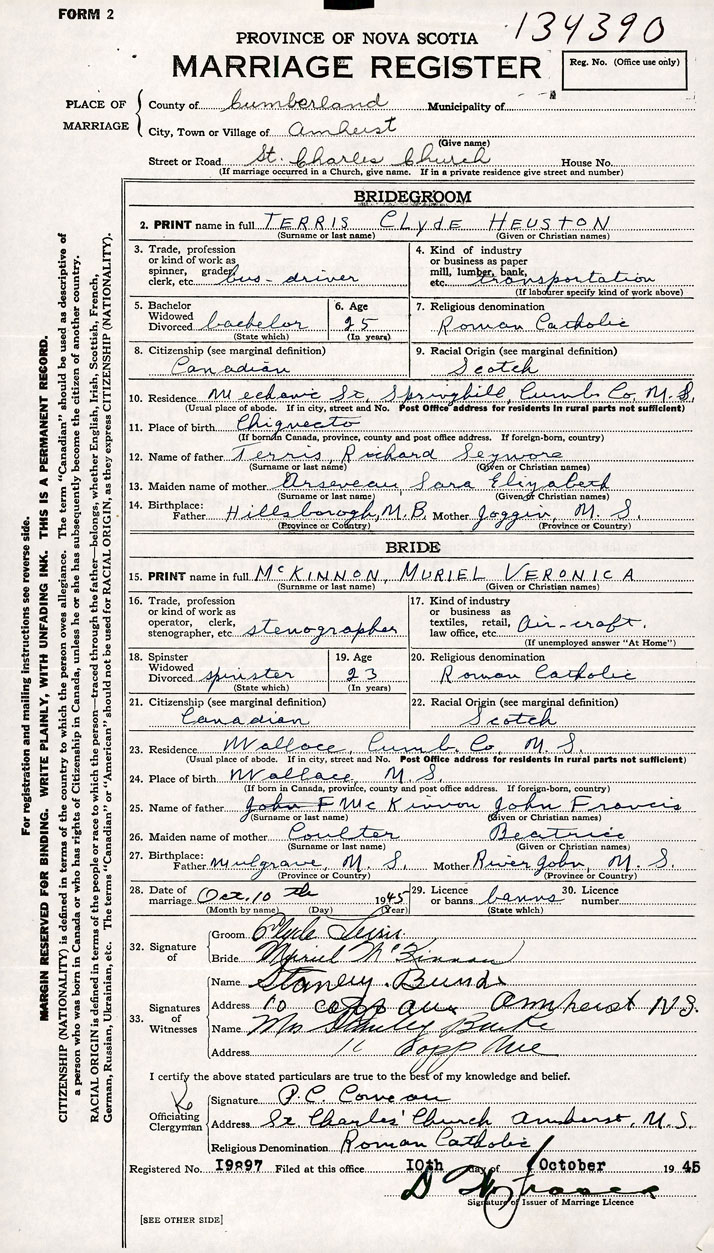 FORM 2
134390
PROVINCE OF NOVA SCOTIA
MARRIAGE REGISTER
Reg. No. (Office use only)
PLACE OF MARRIAGE
County of Cumberland Municipality of
City, Town or Village of Amherst
(Give name)
Street or Road St. Charles Church House No.
(If marriage occurred in a Church, give name. If in a private residence give street and number)
BRIDEGROOM
2. PRINT name in full TERRIS Clyde HEUSTON
(Surname or last name) (Given or Christian names)
3. Trade, profession or kind of work as spinner, grader, clerk, etc. bus-driver
4. Kind of industry or business as paper mill, lumber, bank, etc. transportation
(If labourer specify kind of work above)
5. Bachelor Widowed Divorced bachelor
(State which)
6. Age 25
(In years)
7. Religious denomination
Roman Catholic
8. Citizenship (see marginal definition)
Canadian
9. Racial Origin (see marginal definition)
Scotch
10. Residence Mechanic St., Springhill, Cumb. Co, N.S.
(Usual place of abode. If in city, street and No. Post Office address for residents in rural parts not sufficient)
11. Place of birth Chignecto
(If born in Canada, province, county and post office address. If foreign-born, country)
12. Name of father Terris, Richard Seymore
(Surname or last name) (Given or Christian names)
13. Maiden name of mother Arseveau Sara Elizabeth
(Surname or last name) (Given or Christian names)
14. Birthplace:
Father Hillsborough, N.B. Mother Joggin, N.S.
(Province or Country) (Province or Country)
BRIDE
15. PRINT name in full McKINNON, MURIEL VERONICA
(Surname or last name) (Given or Christian names)
16. Trade, profession or kind of work as operator, clerk, stenographer, etc. stenographer
17. Kind of industry or business as textiles, retail, law office, etc. Air-craft.
(If unemployed answer "At Home")
18. Spinster Widowed Divorced spinster
(State which)
19. Age 23
(In years)
20. Religious denomination
Roman Catholic
21. Citizenship (see marginal definition)
Canadian
22. Racial Origin (see marginal definition)
Scotch
23. Residence Wallace, Cumb. Co, N.S.
(Usual place of abode. If in city, street and No. Post Office address for residents in rural parts not sufficient)
24. Place of birth Wallace, N.S.
(If born in Canada, province, county and post office address. If foreign-born, country)
25. Name of father John F McKinnon John Francis
(Surname or last name) (Given or Christian names)
26. Maiden name of mother Coulter Beatrice
(Surname or last name) (Given or Christian names)
27. Birthplace:
Father Mulgrave, N.S. Mother River John, N.S.
(Province or Country) (Province or Country)
28. Date of marriage Oct. 10th 1945
(Month by name) (Day) (Year)
29. Licence or banns banns
(State which)
30. Licence number
32. Signature of
Groom Clyde Terris
Bride Muriel McKinnon
33. Signatures of Witnesses
Name Stanley
Address 10 Copp Ave Amherst N.S.
Name Mrs Stanley
Address Copp Ave
I certify the above stated particulars are true to the best of my knowledge and belief.
Officiating Clergyman
Signature P.C.
Address St Charles' Church Amherst, N.S.
Religious Denomination Roman Catholic
Registered No. I9897 Filed at this office I0th day of October 1945
Signature of Issuer of Marriage Licence
[SEE OTHER SIDE]
For registration and mailing instructions see reverse side.
MARGIN RESERVED FOR BINDING. WRITE PLAINLY, WITH UNFADING INK. THIS IS A PERMANENT RECORD.
CITIZENSHIP (NATIONALITY) is defined in terms of the country to which the person owes allegiance. The term "Canadian" should be used as descriptive of
a person who was born in Canada or who has rights of Citizenship in Canada, unless he or she has subsequently become the citizen of another country.
RACIAL ORIGIN is defined in terms of the people or race to which the person—traced through the father—belongs, whether English, Irish, Scottish, French,
German, Russian, Ukrainian, etc. The terms "Canadian" or "American" should not be used for RACIAL ORIGIN, as they express CITIZENSHIP (NATIONALITY).